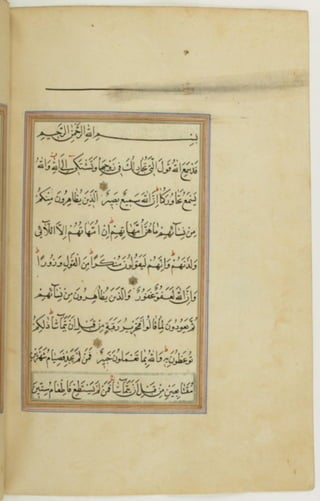 بِسْمِ اللهِ الرَّحْمٰنِ الرَّحِيمِ
قَدْ سَمِعَ اللهُ قَوْلَ الَّتِي تُجَادِلُكَ فِي زَوْجِهَا وَتَشْتَكِي إِلَى اللهِ وَاللهُ
يَسْمَعُ تَحَاوُرَكُمَا إِنَّ اللهَ سَمِيعٌ بَصِيرٌ الَّذِينَ يُظَاهِرُونَ مِنْكُمْ
مِنْ نِسَائِهِمْ مَا هُنَّ أُمَّهَاتِهِمْ إِنْ أُمَّهَاتُهُمْ إِلَّا اللَّائِي
وَلَدْنَهُمْ وَإِنَّهُمْ لَيَقُولُونَ مُنْكَرًا مِنَ الْقَوْلِ وَزُورًا
وَإِنَّ اللهَ لَعَفُوٌّ غَفُورٌ وَالَّذِينَ يُظَاهِرُونَ مِنْ نِسَائِهِمْ
ثُمَّ يَعُودُونَ لِمَا قَالُوا فَتَحْرِيرُ رَقَبَةٍ مِنْ قَبْلِ أَنْ يَتَمَاسَّا ذٰلِكُمْ
تُوعَظُونَ بِهِ وَاللهُ بِمَا تَعْمَلُونَ خَبِيرٌ فَمَنْ لَمْ يَجِدْ فَصِيَامُ شَهْرَيْنِ
مُتَتَابِعَيْنِ مِنْ قَبْلِ أَنْ يَتَمَاسَّا فَمَنْ لَمْ يَسْتَطِعْ فَإِطْعَامُ سِتِّينَ